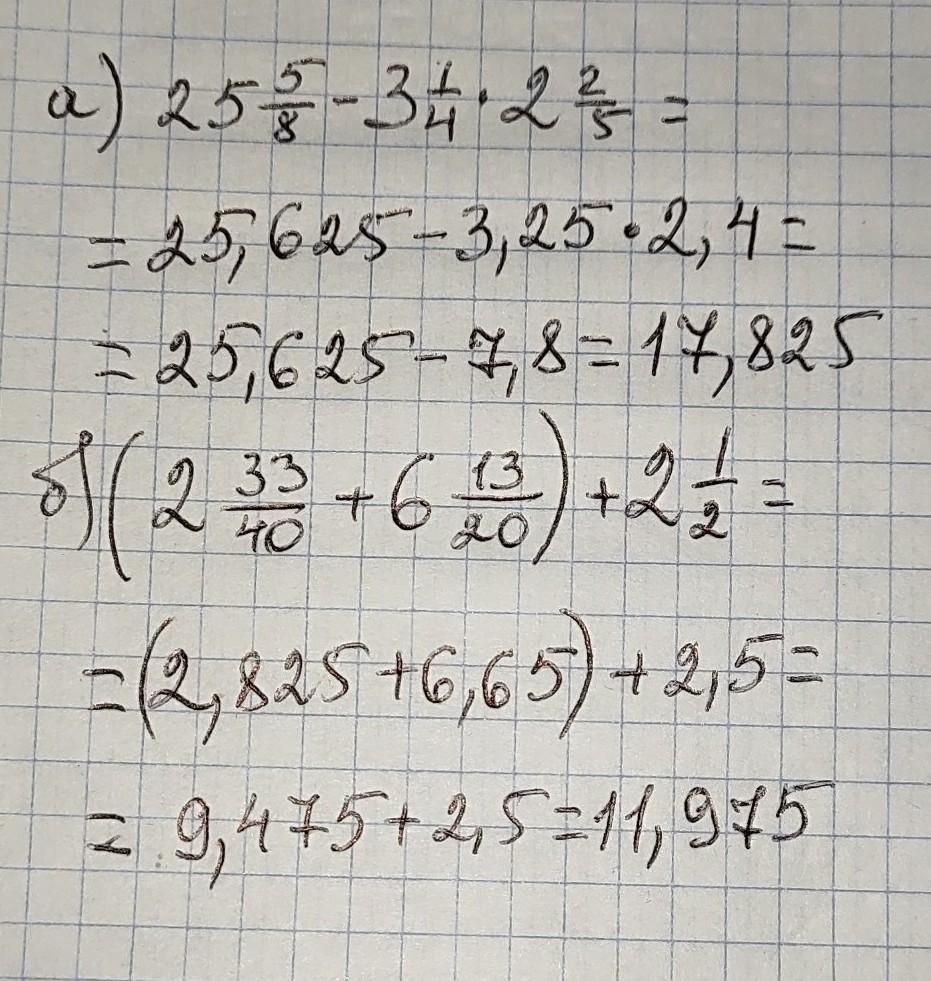 а) 25 5/8 - 3 1/4 · 2 2/5 =
= 25,625 - 3,25 · 2,4 =
= 25,625 - 7,8 = 17,825
б) (2 33/40 + 6 13/20) + 2 1/2 =
= (2,825 + 6,65) + 2,5 =
= 9,475 + 2,5 = 11,975